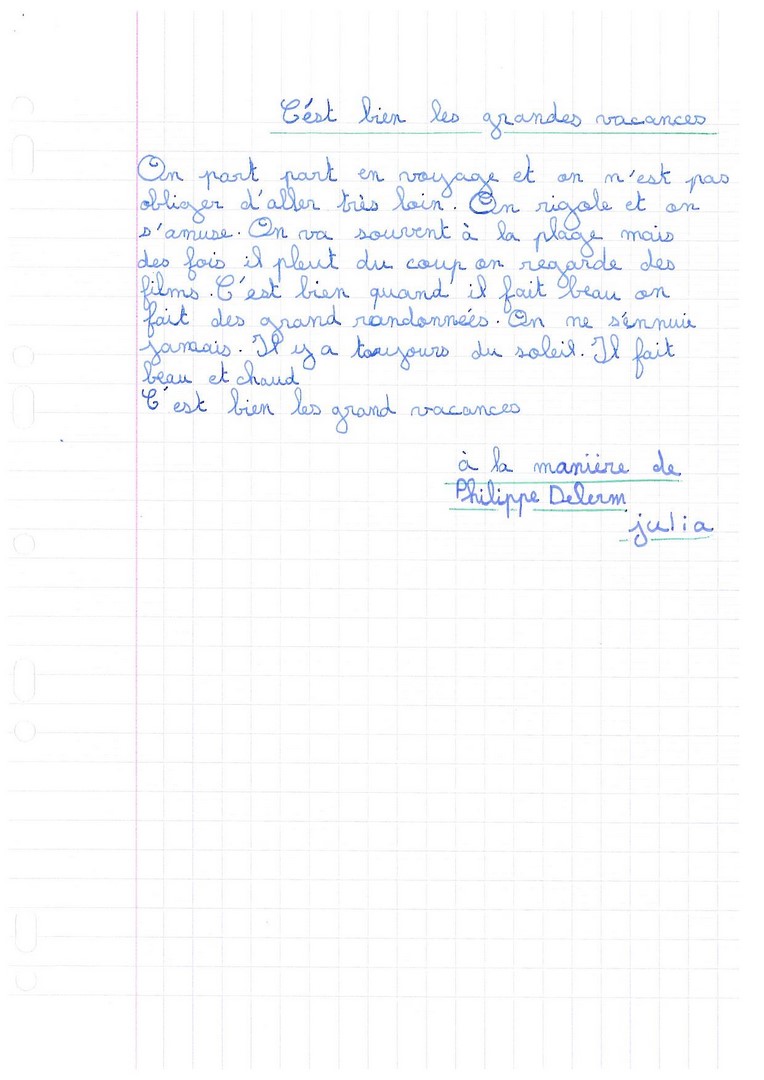 C'est bien les grandes vacances
On part part en voyage et on n'est pas
obliger d'aller très loin. On rigole et on
s'amuse. On va souvent à la plage mais
des fois il pleut du coup on regarde des
films. C'est bien quand il fait beau on
fait des grand randonnées. On ne s'ennuie
jamais. Il y a toujours du soleil. Il fait
beau et chaud
C'est bien les grand vacances
à la manière de
Philippe Delerm
julia